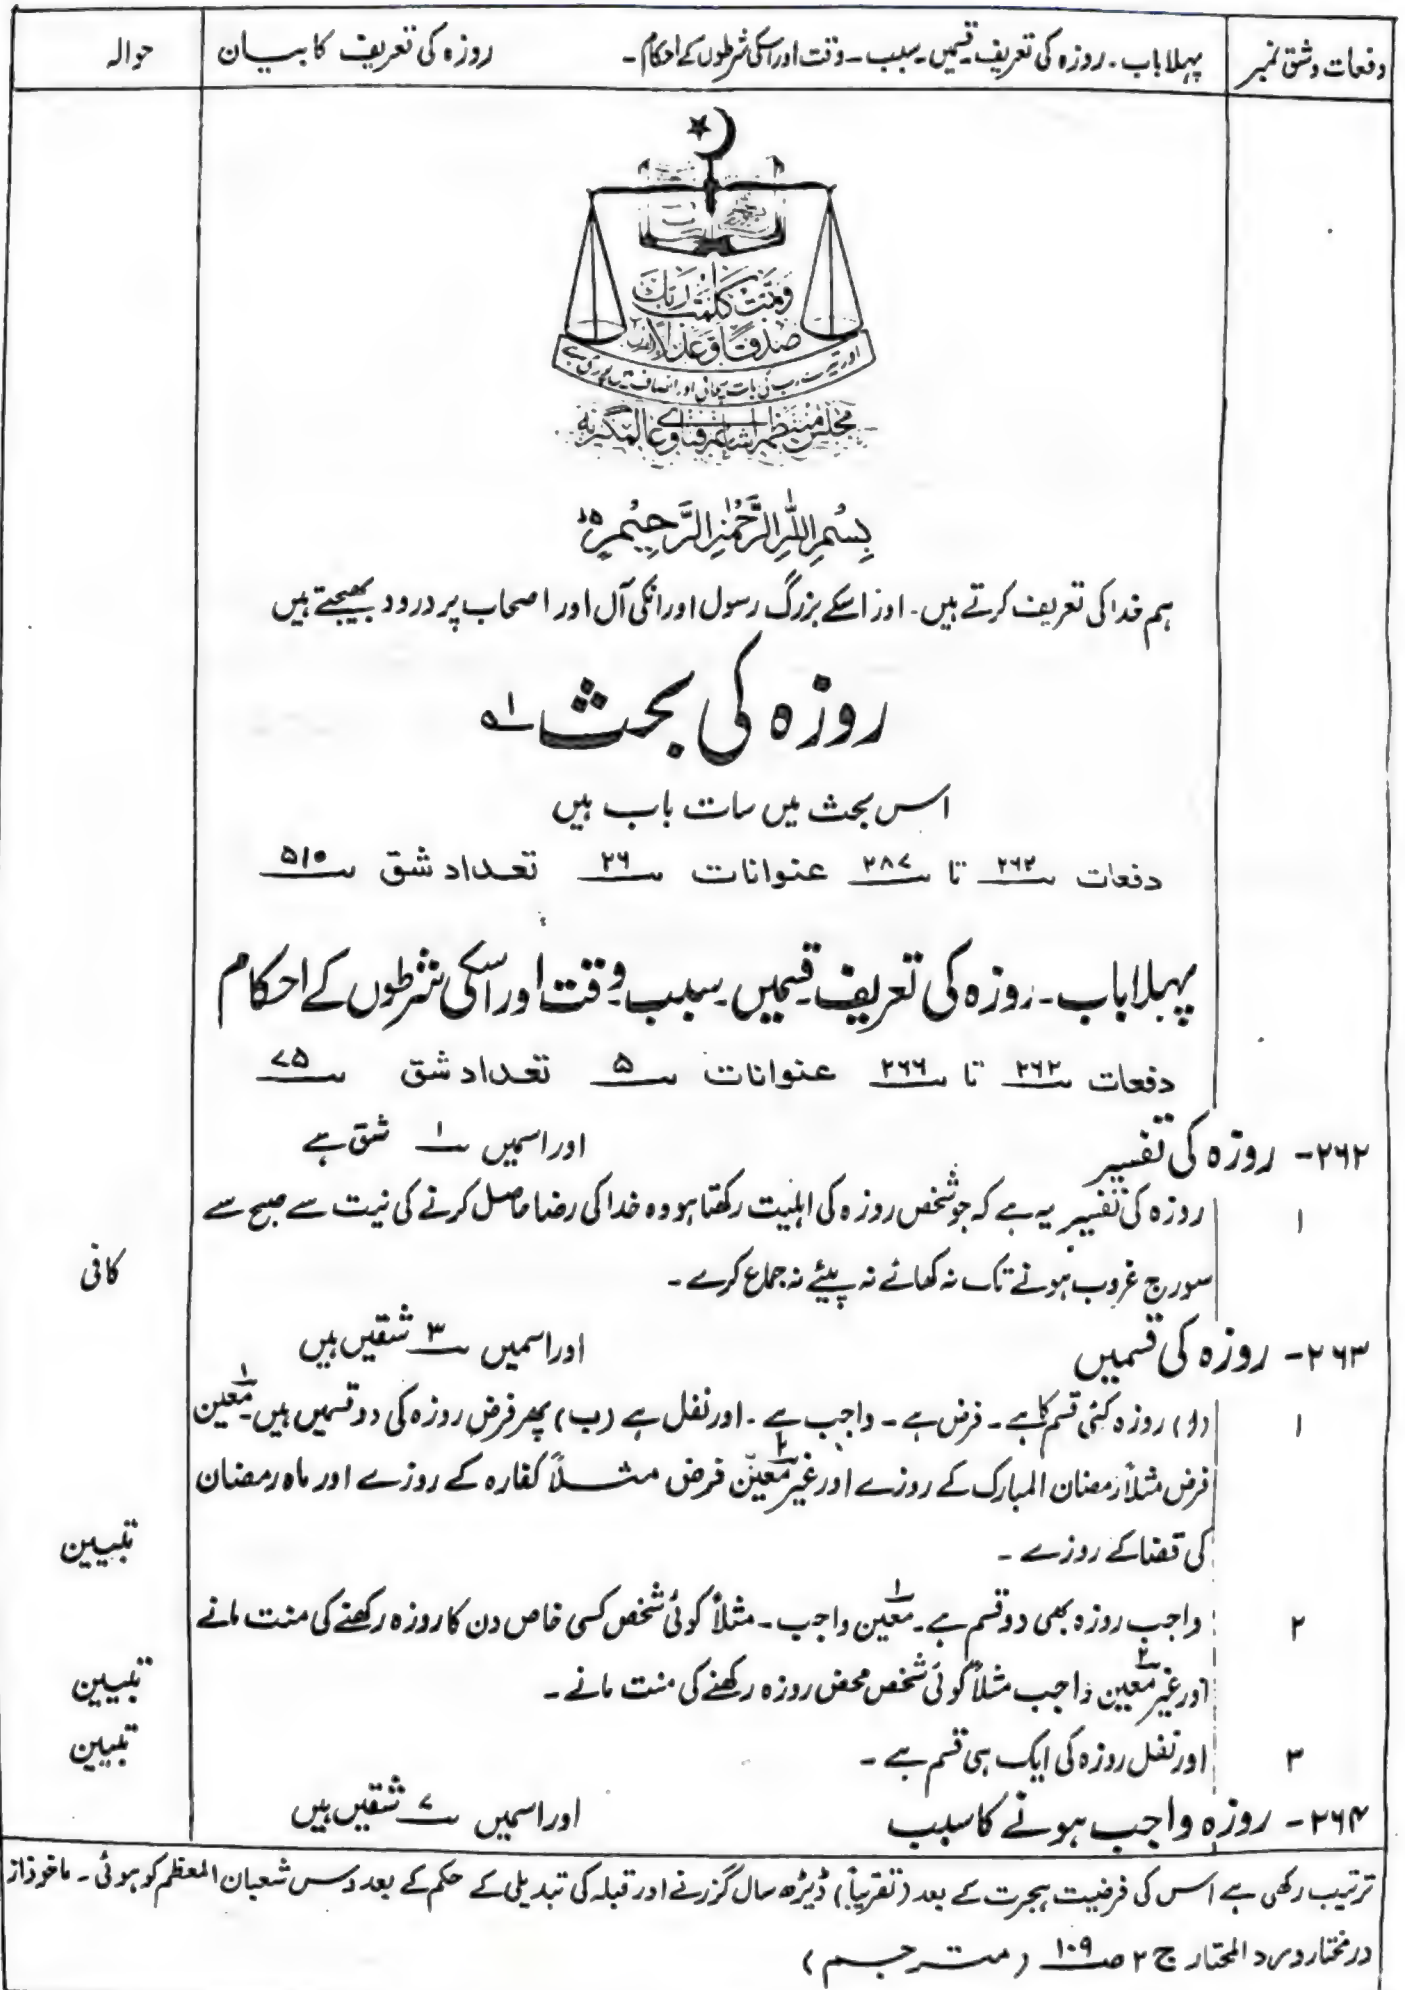 دفعات و شق نمبر	پہلا باب۔ روزہ کی تعریف۔ قسمیں۔ سبب۔ وقت اور اسکی شرطوں کے احکام۔	روزہ کی تعریف کا بیان	حوالہ
وتمت کلمت ربک
صدقا وعدلا
اور تیرے رب کی بات سچائی اور انصاف میں پوری ہے
مجلس منتظمہ اشاعت فتاویٰ عالمگیریہ
بِسْمِ اللهِ الرَّحْمٰنِ الرَّحِيْمِ
ہم خدا کی تعریف کرتے ہیں۔ اور اسکے بزرگ رسول اور انکی آل اور اصحاب پر درود بھیجتے ہیں
روزہ کی بحث ۱؎
اس بحث میں سات باب ہیں
دفعات ۲۶۲ تا ۲۸۷ عنوانات ۲۶ تعداد شق ۵۱۰
پہلا باب۔ روزہ کی تعریف۔ قسمیں۔ سبب۔ وقت اور اسکی شرطوں کے احکام
دفعات ۲۶۲ تا ۲۶۶ عنوانات ۵ تعداد شق ۷۵
۲۶۲- روزہ کی تفسیر اور اسمیں ۱ شق ہے
۱ روزہ کی تفسیر یہ ہے کہ جو شخص روزہ کی اہلیت رکھتا ہو وہ خدا کی رضا حاصل کرنے کی نیت سے صبح سے
سورج غروب ہونے تک نہ کھائے نہ پیئے نہ جماع کرے۔ کافی
۲۶۳- روزہ کی قسمیں اور اسمیں ۳ شقیں ہیں
۱ (ا) روزہ کئی قسم کا ہے۔ فرض ہے۔ واجب ہے۔ اور نفل ہے (ب) پھر فرض روزہ کی دو قسمیں ہیں۔ ۱ معین
فرض مثلاً رمضان المبارک کے روزے اور ۲ غیر معیّن فرض مثلاً کفارہ کے روزے اور ماہ رمضان
کی قضا کے روزے۔ تبیین
۲ واجب روزہ بھی دو قسم ہے۔ ۱ معین واجب۔ مثلاً کوئی شخص کسی خاص دن کا روزہ رکھنے کی منت مانے
اور ۲ غیر معین واجب مثلاً کوئی شخص محض روزہ رکھنے کی منت مانے۔ تبیین
۳ اور نفل روزہ کی ایک ہی قسم ہے۔ تبیین
۲۶۴- روزہ واجب ہونے کا سبب اور اسمیں ۷ شقیں ہیں
ترتیب رکھی ہے اس کی فرضیت ہجرت کے بعد (تقریباً) ڈیڑھ سال گزرنے اور قبلہ کی تبدیلی کے حکم کے بعد دس شعبان المعظم کو ہوئی۔ ماخوذ از
درمختار و رد المحتار ج ۲ ص ۱۰۹ (مترجم)